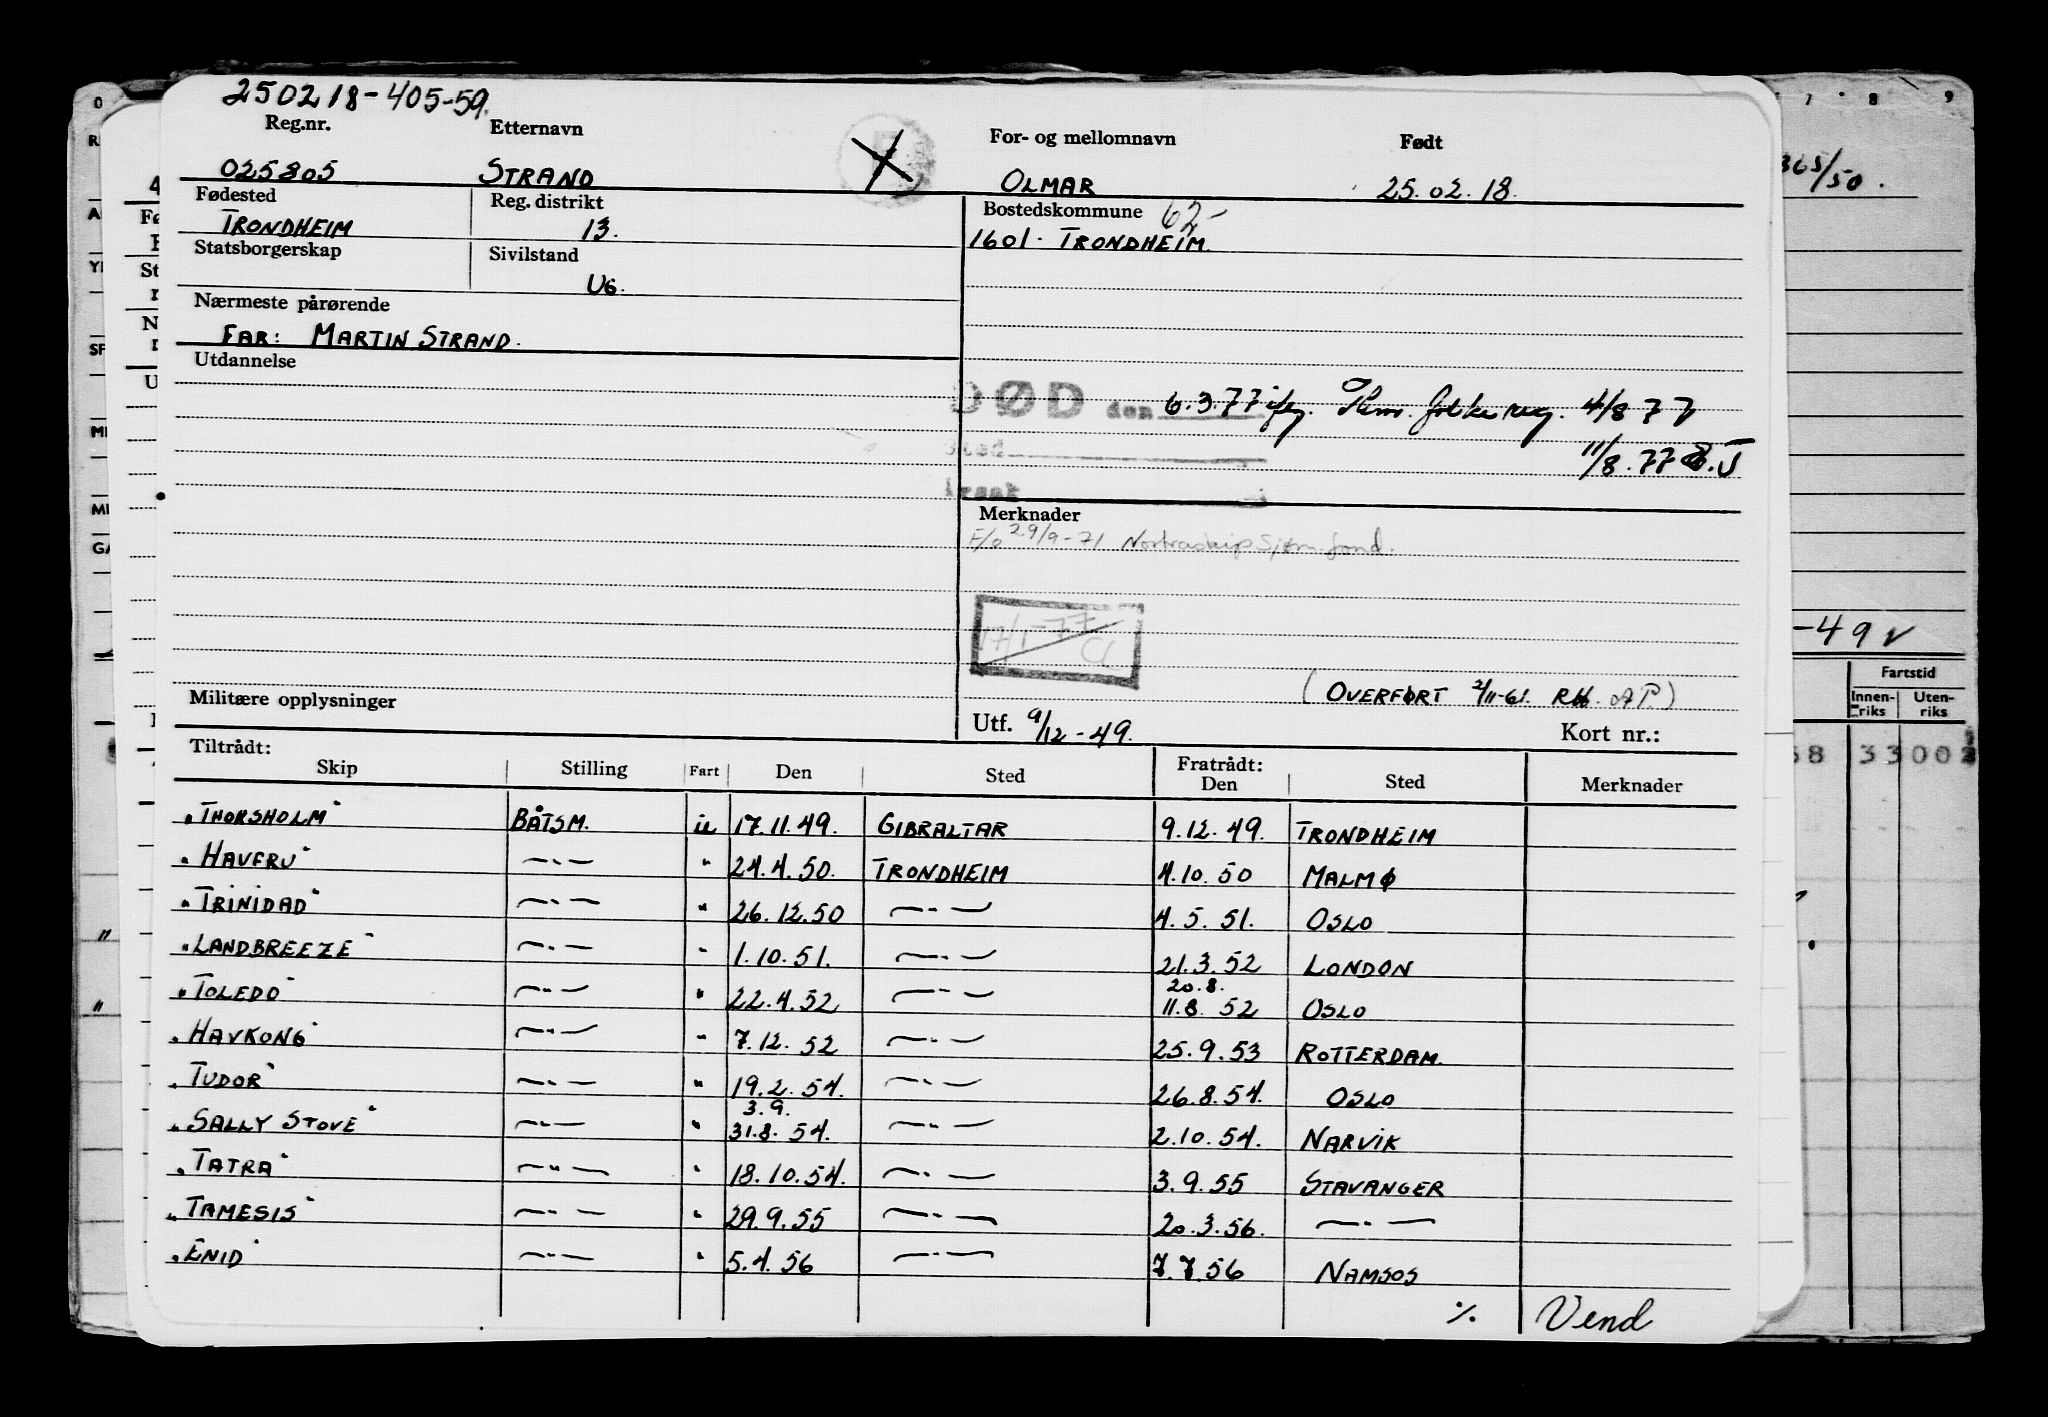 250218-405-59.
Reg.nr. Etternavn For- og mellomnavn Født
025805 STRAND OLMAR 25.02.18.
Fødested Reg. distrikt Bostedskommune 62-
TRONDHEIM 13. 1601. TRONDHEIM.
Statsborgerskap Sivilstand
UG.
Nærmeste pårørende
FAR: MARTIN STRAND.
Utdannelse
DØD den 6.3.77 ifg. folkereg. 4/8 77
Sted
11/8.77
Årsak
Merknader
F/o 29/9-71 Nortraskip Sjøm.fond.
17/1-77
(OVERFØRT 2/11-61. RH. AP.)
Militære opplysninger Utf. 9/12-49. Kort nr.:
Tiltrådt: Fratrådt:
Skip Stilling Fart Den Sted Den Sted Merknader
"THORSHOLM" BÅTSM. u 17.11.49. GIBRALTAR 9.12.49. TRONDHEIM
"HAVFRU" —"— " 24.4.50. TRONDHEIM 4.10.50 MALMØ
"TRINIDAD" —"— " 26.12.50 —"— 4.5.51. OSLO
"LANDBREEZE" —"— " 1.10.51. —"— 21.3.52 LONDON
20.8.
"TOLEDO" —"— " 22.4.52 —"— 11.8.52 OSLO
"HAVKONG" —"— " 7.12.52 —"— 25.9.53 ROTTERDAM.
"TUDOR" —"— " 19.2.54. —"— 26.8.54. OSLO
3.9.
"SALLY STOVE" —"— " 31.8.54. —"— 2.10.54. NARVIK
"TATRA" —"— " 18.10.54. —"— 3.9.55 STAVANGER
"TAMESIS" —"— " 29.9.55 —"— 20.3.56. —"—
"ENID" —"— " 5.4.56 —"— 7.7.56 NAMSOS
% Vend
7 8 9
365/50.
-49
Fartstid
Innenriks Utenriks
68 33002